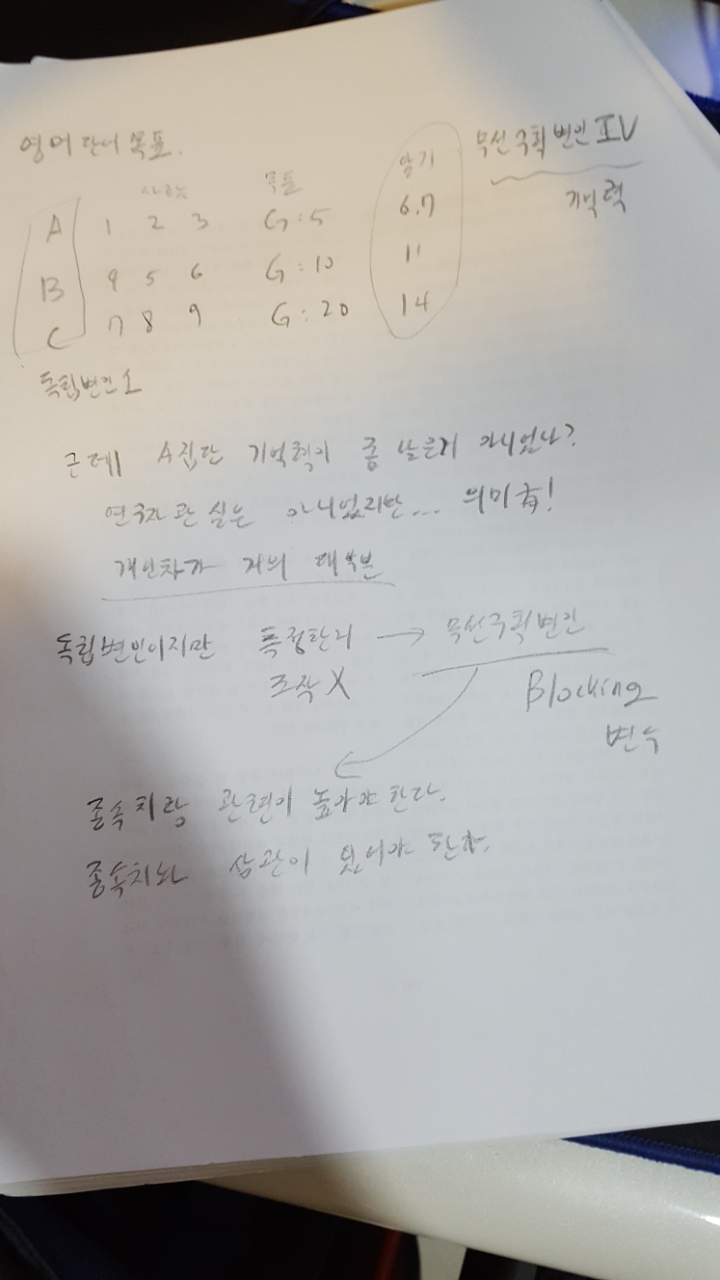 영어 단어 목표.
사람 목표 암기 무선구획변인 IV
A 1 2 3 G:5 6.7 기억력
B 4 5 6 G:10 11
C 7 8 9 G:20 14
독립변인 1
근데 A집단 기억력이 좀 낮은거 아니었나?
연구자 관심은 아니었지만... 의미有!
개인차가 거의 대부분
독립변인이지만 특정한거 → 무선구획변인
조작X Blocking
변수
종속치랑 관련이 높아야 한다.
종속치와 상관이 있어야 한다.